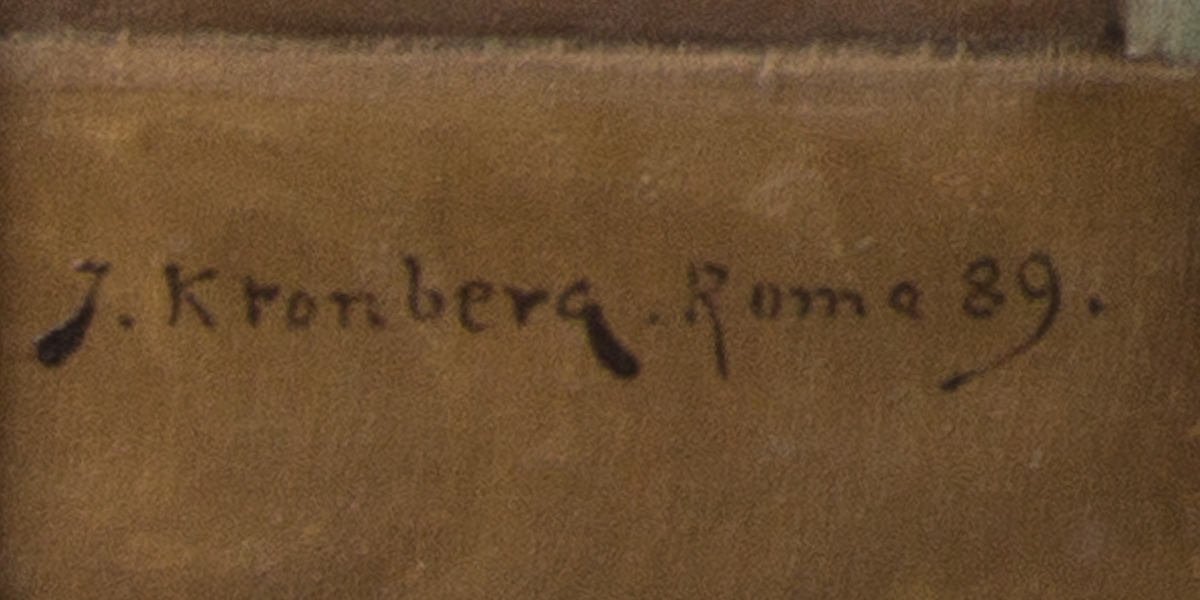 J. Kronberg. Roma 89.